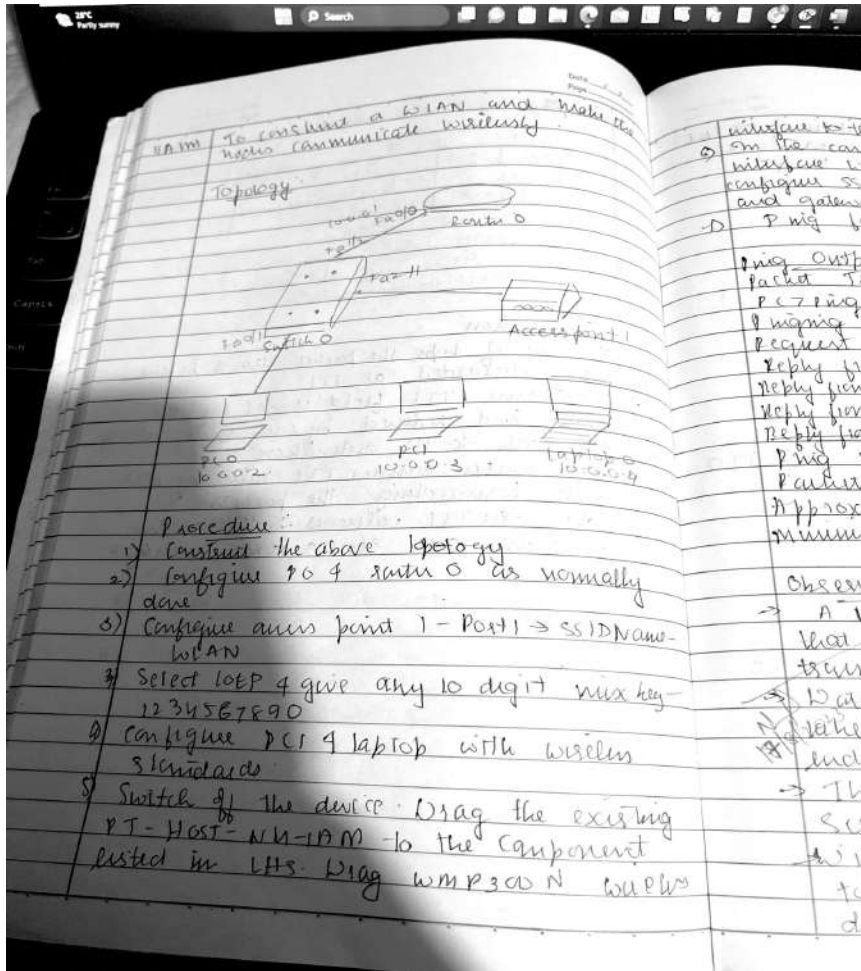 28°C
Partly sunny
Search
Date
Page
Aim To construct a WLAN and make the
nodes communicate wirelessly.
Topology:
10.0.0.1 Fa0/0
Router 0
Fa1/1
Fa2/1
Access point 1
Fa0/1
Switch 0
PC0
10.0.0.2
PC1
10.0.0.3
Laptop 0
10.0.0.4
Procedure:
1) Construct the above topology
2) Configure PC0 & router 0 as normally
done
3) Configure access point 1 - Port1 → SSID Name -
WLAN
3) Select WEP & give any 10 digit hex key -
1234567890
4) Configure PC1 & laptop with wireless
standards.
5) Switch off the device. Drag the existing
PT-HOST-NM-1AM to the component
listed in LHS. Drag WMP300N wireless
interface to t
In the con
interface
configure SS
and gatew
Ping f
Ping Outp
Packet T
PC> Ping
Pinging
Request
Reply fr
Reply from
Reply from
Reply fro
Ping
Packets
Approx
Minimu
Obser
→
that
trans
→
→ Th
to
d